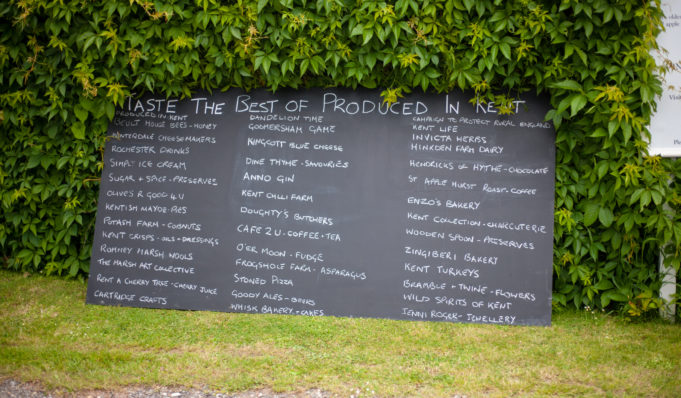 TASTE THE BEST OF PRODUCED IN KENT
PRODUCED IN KENT
OCULT HOUSE BEES - HONEY
WINTERDALE CHEESEMAKERS
ROCHESTER DRINKS
SIMAS ICE CREAM
SUGAR + SPICE - PRESERVES
OLIVE'S & GOOD 4 U
KENTISH MAYDE - PIES
POTASH FARM - COBNUTS
KENT CRISPS - OILS + DRESSINGS
ROMNEY MARSH WOOLS
THE MARSH ART COLLECTIVE
RENT A CHERRY TREE - CHERRY JUICE
CARTRIDGE CRAFTS
DANDELION TIME
GODMERSHAM GAME
KINGCOTT BLUE CHEESE
DINE THYME - SAVOURIES
ANNO GIN
KENT CHILLI FARM
DOUGHTY'S BUTCHERS
CAFE 2 U - COFFEE + TEA
O'ER MOON - FUDGE
FROGSHOLE FARM - ASPARAGUS
STONED PIZZA
GOODY ALES - BEERS
WHISK BAKERY - CAKES
CAMPAIGN TO PROTECT RURAL ENGLAND
KENT LIFE
INVICTA HERBS
HINXDEN FARM DAIRY
HENDRICKS OF HYTHE - CHOCOLATE
ST APPLE HURST ROAST - COFFEE
ENZO'S BAKERY
KENT COLLECTION - CHARCUTERIE
WOODEN SPOON - PRESERVES
ZINGIBERI BAKERY
KENT TURKEYS
BRAMBLE + TWINE - FLOWERS
WILD SPIRITS OF KENT
JENNI ROGER - JEWELLERY
apple
Visit